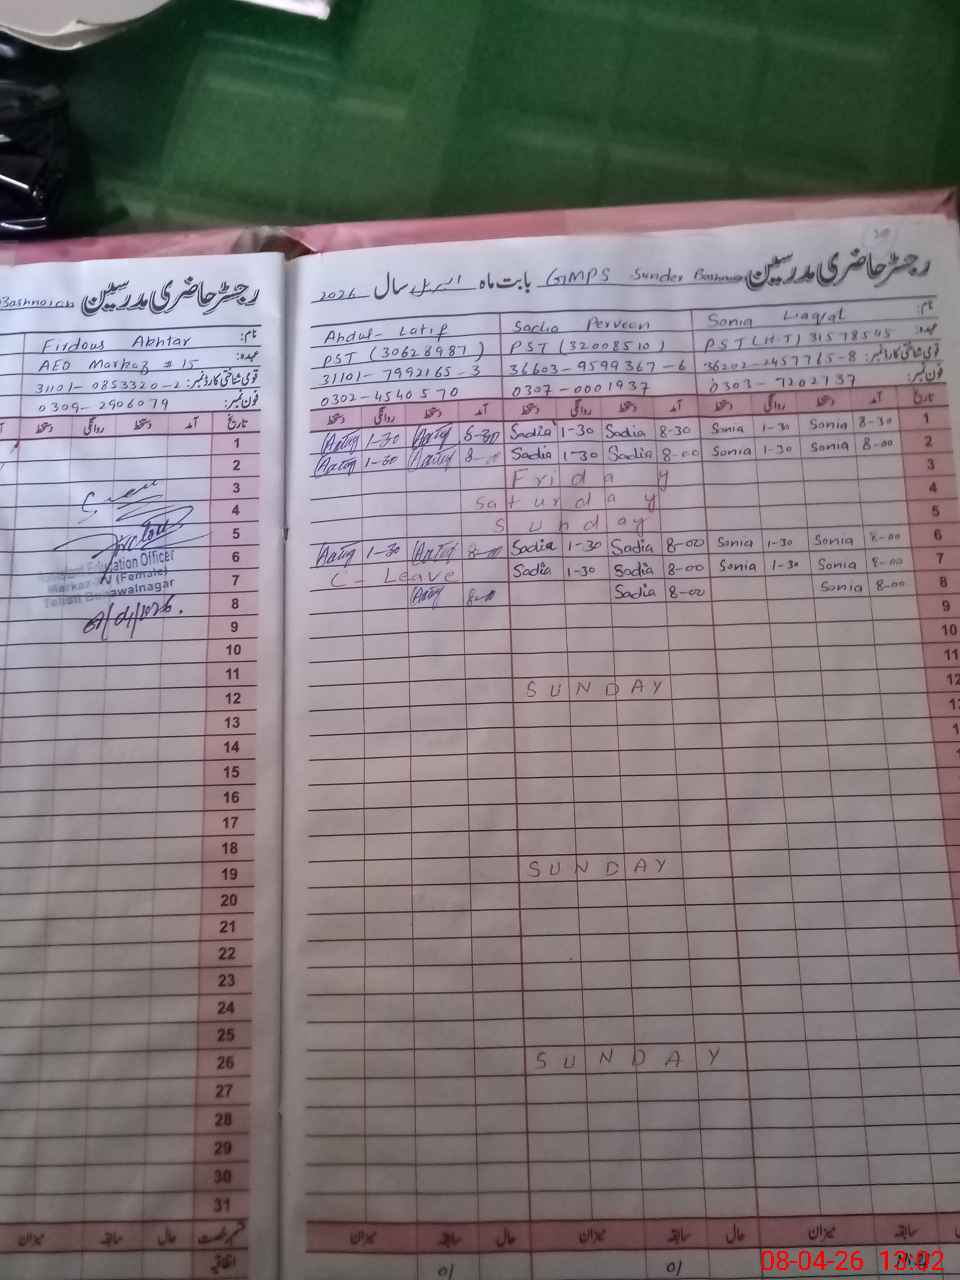 رجسٹر حاضری مدرسین
نام: Firdous Akhtar
عہدہ: AEO Markaz # 15
قومی شناختی کارڈ نمبر: 31101-0853320-2
فون نمبر: 0309-2906079
تاریخ آمد دستخط روانگی دستخط
1
2
3
4
5
6
7
8
9
10
11
12
13
14
15
16
17
18
19
20
21
22
23
24
25
26
27
28
29
30
31
Education Officer
Markaz (Female)
Bahawalnagar
میزان سابقہ حال
اتفاقیہ
رجسٹر حاضری مدرسین GMPS Sunder بابت ماہ اپریل سال 2026
نام: Abdul-Latif Sadia Perveen Sonia Liaqat
عہدہ: PST (30628987) PST (32008510) PST (H.T) 31578545
قومی شناختی کارڈ نمبر: 31101-7992165-3 36603-9599367-6 36202-2457765-8
فون نمبر: 0302-4540570 0307-0001937 0303-7202737
تاریخ آمد دستخط روانگی دستخط آمد دستخط روانگی دستخط آمد دستخط روانگی دستخط
1-30 8-30 Sadia 1-30 Sadia 8-30 Sonia 1-30 Sonia 8-30 1
1-30 8-00 Sadia 1-30 Sadia 8-00 Sonia 1-30 Sonia 8-00 2
Friday 3
Saturday 4
Sunday 5
1-30 8-00 Sadia 1-30 Sadia 8-00 Sonia 1-30 Sonia 8-00 6
C-Leave Sadia 1-30 Sadia 8-00 Sonia 1-30 Sonia 8-00 7
8-00 Sadia 8-00 Sonia 8-00 8
9
10
11
SUNDAY 12
SUNDAY
SUNDAY
میزان سابقہ حال میزان سابقہ حال میزان سابقہ
01 01
08-04-26 13:02